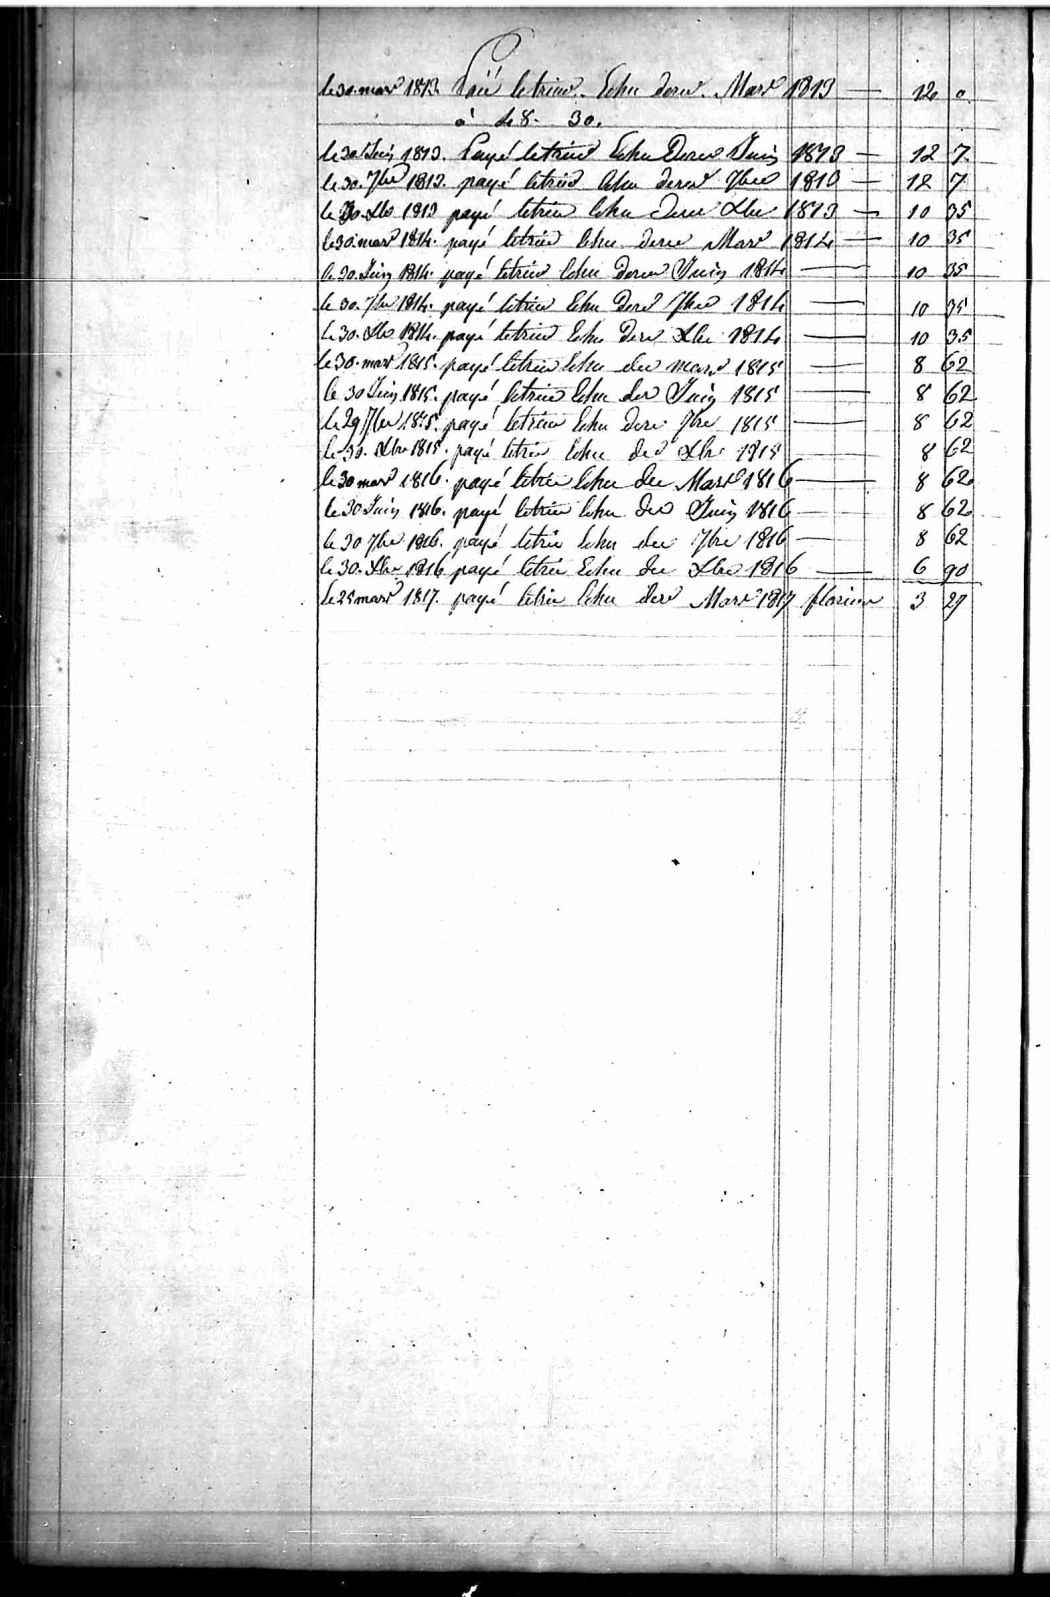 le 30. mars 1813. Paié le trim. Echu dern. Mars 1813 — 12 0
à 48. 30.
le 30 Juin 1813. Payé le trim Echu Dern Juin 1813 — 12 7
le 30. 7bre 1813. payé le trim Echu dern 7bre 1813 — 12 7
le 30. Xbre 1813 payé le trim Echu dern Xbre 1813 — 10 35
le 30 mars 1814. payé le trim Echu dern Mars 1814 — 10 35
le 30. Juin 1814. payé le trim Echu dern Juin 1814 — 10 35
le 30. 7bre 1814. payé le trim Echu Dern 7bre 1814 — 10 35
le 30. Xbre 1814. payé le trim Echu Dern Xbre 1814 — 10 35
le 30. mars 1815. payé le trim Echu der mars 1815 — 8 62
le 30 Juin 1815. payé le trim Echu der Juin 1815 — 8 62
le 29 7bre 1815. payé le trim Echu dern 7bre 1815 — 8 62
le 30. Xbre 1815. payé le trim Echu der Xbre 1815 — 8 62
le 30 mars 1816. payé le trim Echu der Mars 1816 — 8 62
le 30 Juin 1816. payé le trim Echu der Juin 1816 — 8 62
le 30 7bre 1816. payé le trim Echu der 7bre 1816 — 8 62
le 30. Xbre 1816 payé le trim Echu der Xbre 1816 — 6 90
mars 1817. payé le trim Echu dern Mars 1817 florins 3 27